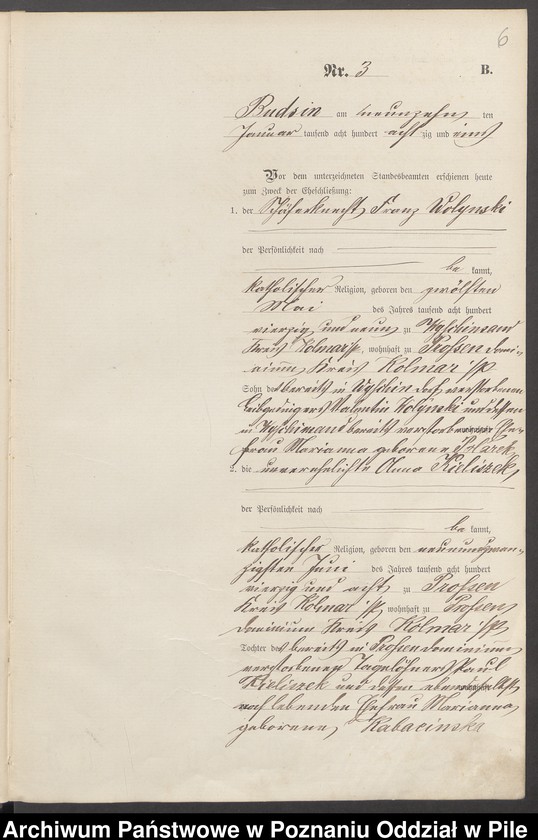 6
Nr. 3 B.
Budsin am neunzehn ten
Januar tausend acht hundert acht zig und eins
Vor dem unterzeichneten Standesbeamten erschienen heute
zum Zweck der Eheschließung:
1. der Schäferknecht Franz Wolynski
der Persönlichkeit nach
be kannt,
katholischer Religion, geboren den zwölften
Mai des Jahres tausend acht hundert
vierzig und neun zu
Kreis Kolmar i/P, wohnhaft zu Prossen Domi-
nium, Kreis Kolmar i/P
Sohn des bereits in Dorf verstorbenen
Leibgedingers Valentin Wolynski und dessen
in bereits verstorbenen Ehe-
frau Marianna geborene
2. die unverehelichte Anna Kieliszek
der Persönlichkeit nach
be kannt,
katholischer Religion, geboren den neunundzwan-
zigsten Juni des Jahres tausend acht hundert
vierzig und acht zu Prossen
Kreis Kolmar i/P, wohnhaft zu Prossen
Dominium Kreis Kolmar i/P
Tochter des bereits in Prossen Dominium
verstorbenen Tagelöhners Paul
Kieliszek und dessen ebendaselbst
noch lebenden Ehefrau Marianna
geborene Kabacinska
Archiwum Państwowe w Poznaniu Oddział w Pile